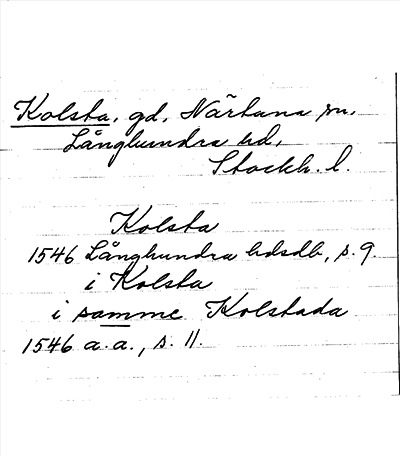 Kolsta, gd, Närtuna sn,
Långhundra hd,
Stockh. l.
Kolsta
1546 Långhundra hdsdb, s. 9.
i Kolsta
i samme Kolstada
1546 a. a., s. 11.